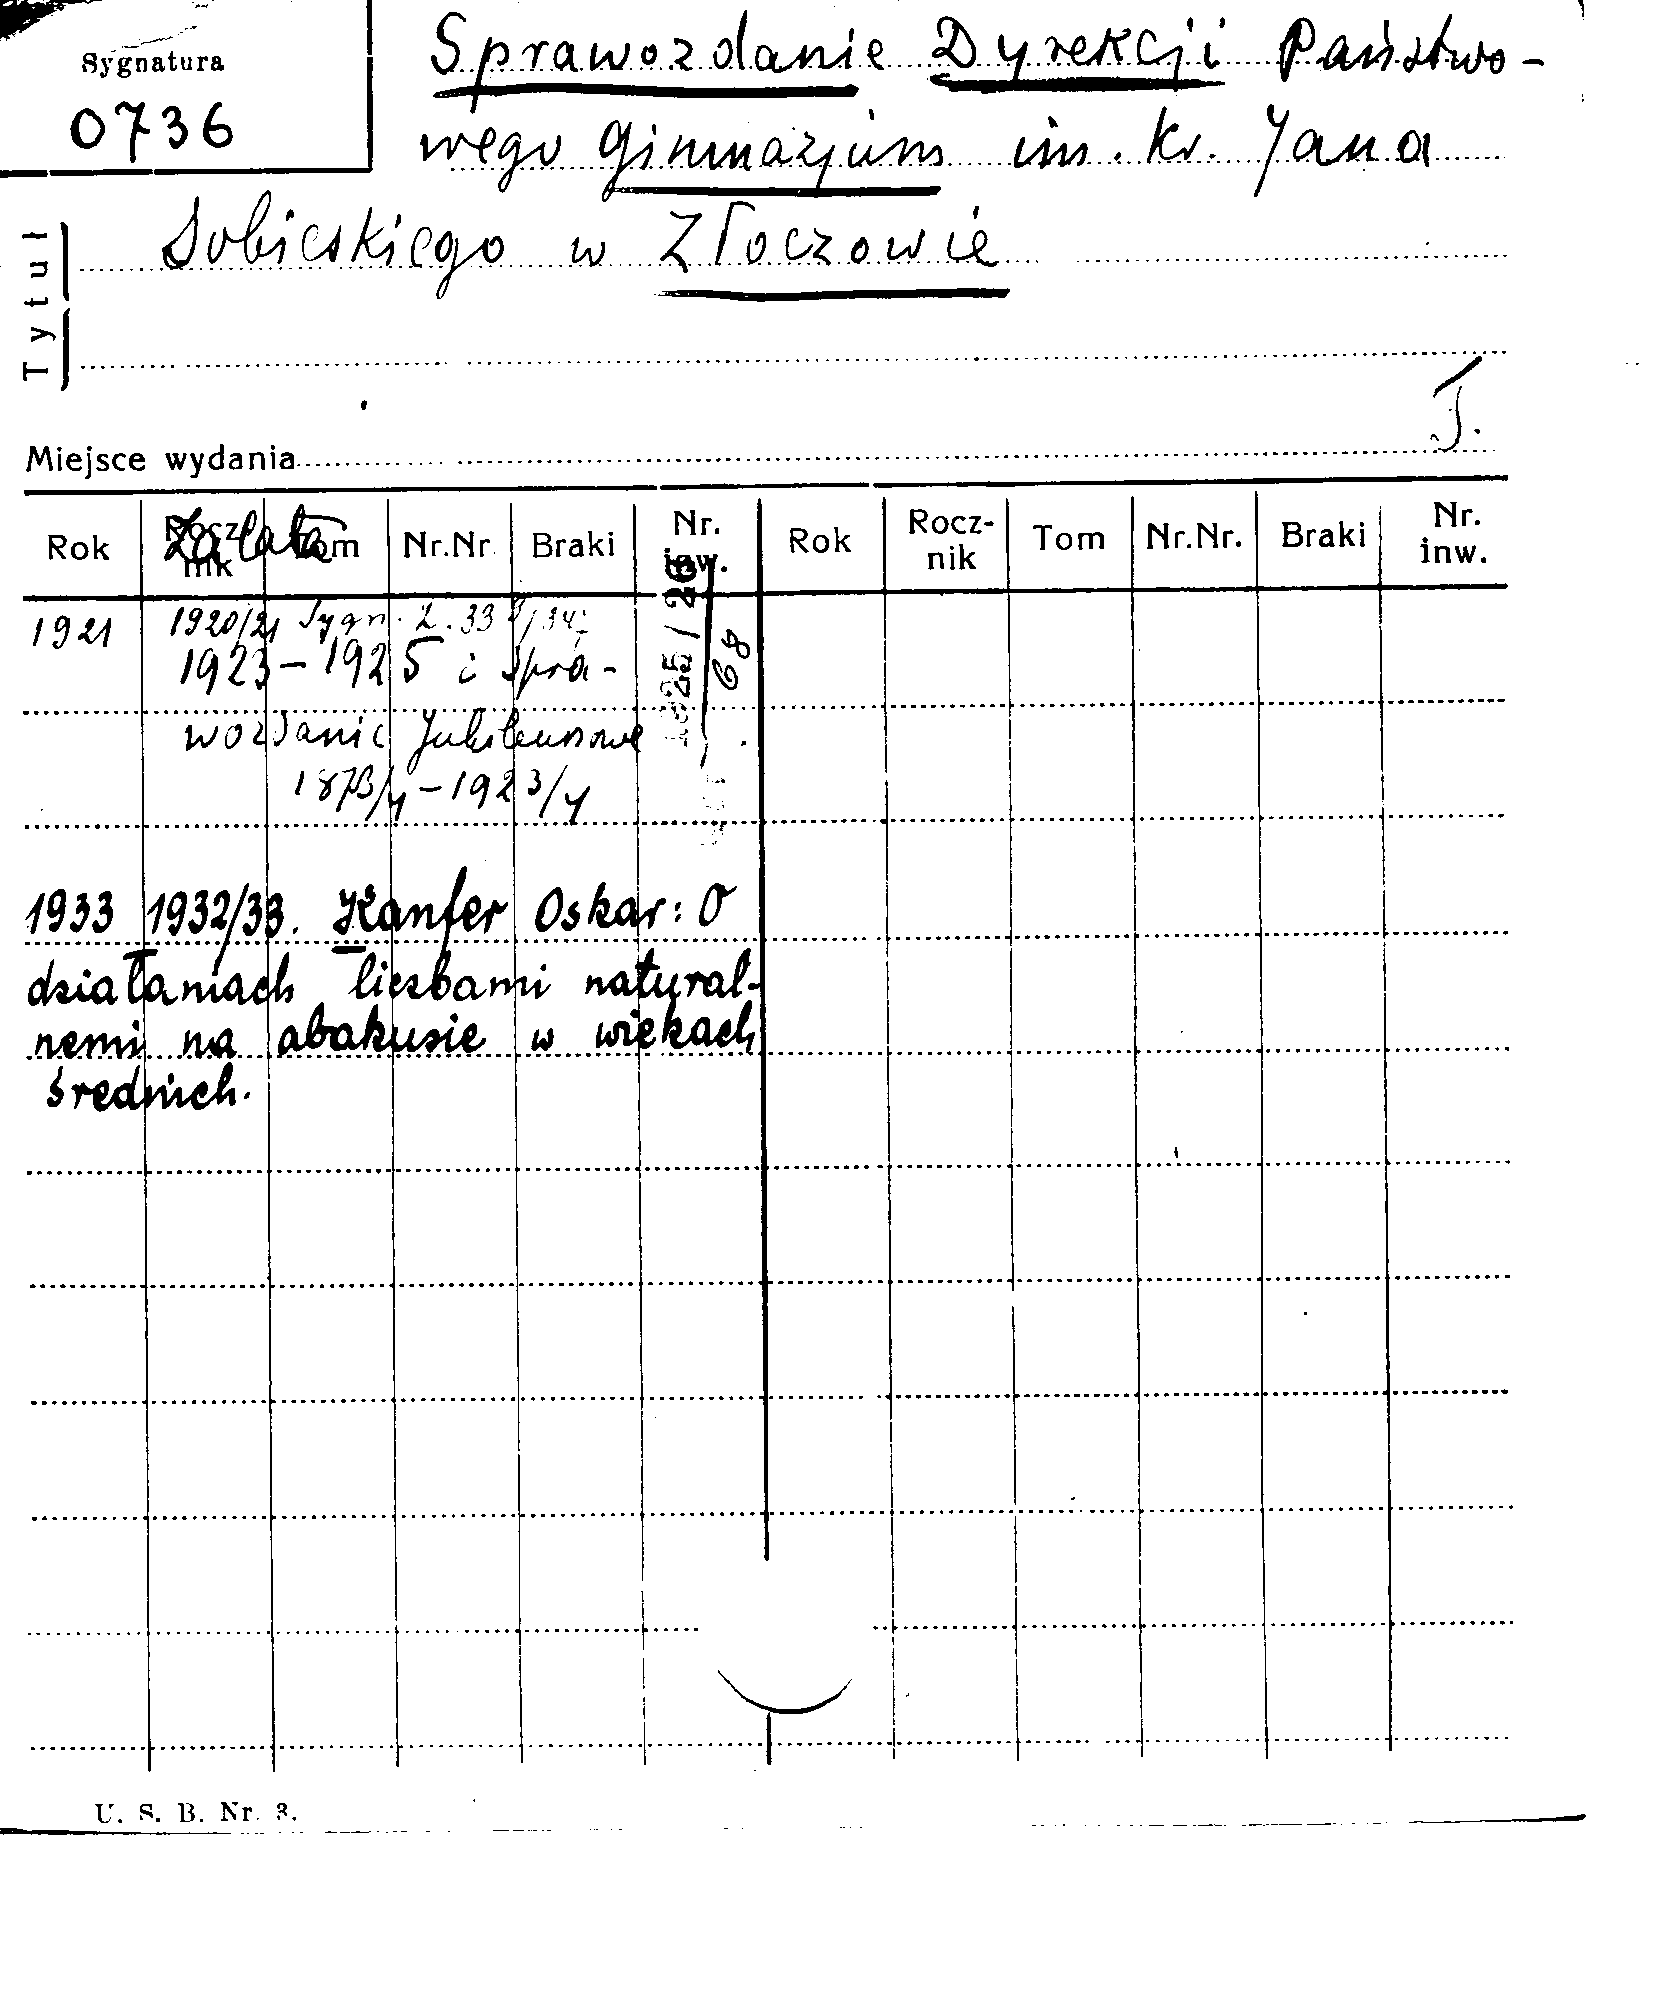 Sygnatura
0736
Sprawozdanie Dyrekcji Państwo-
wego Gimnazjum im. kr. Jana
Sobieskiego w Złoczowie
Tytuł
J.
Miejsce wydania
Rok Rocznik Tom Nr.Nr. Braki Nr. inw. Rok Rocz-nik Tom Nr.Nr. Braki Nr. inw.
Za lata
1921 1920/21 Sygn. Z. 33
1923-1925 i Spra-
wozdanie Jubileuszowe
1873/4-1923/4
68
1933 1932/33. Kanfer Oskar: O
działaniach liczbami natural-
nemi na abakusie w wiekach
średnich.
U. S. B. Nr. 3.